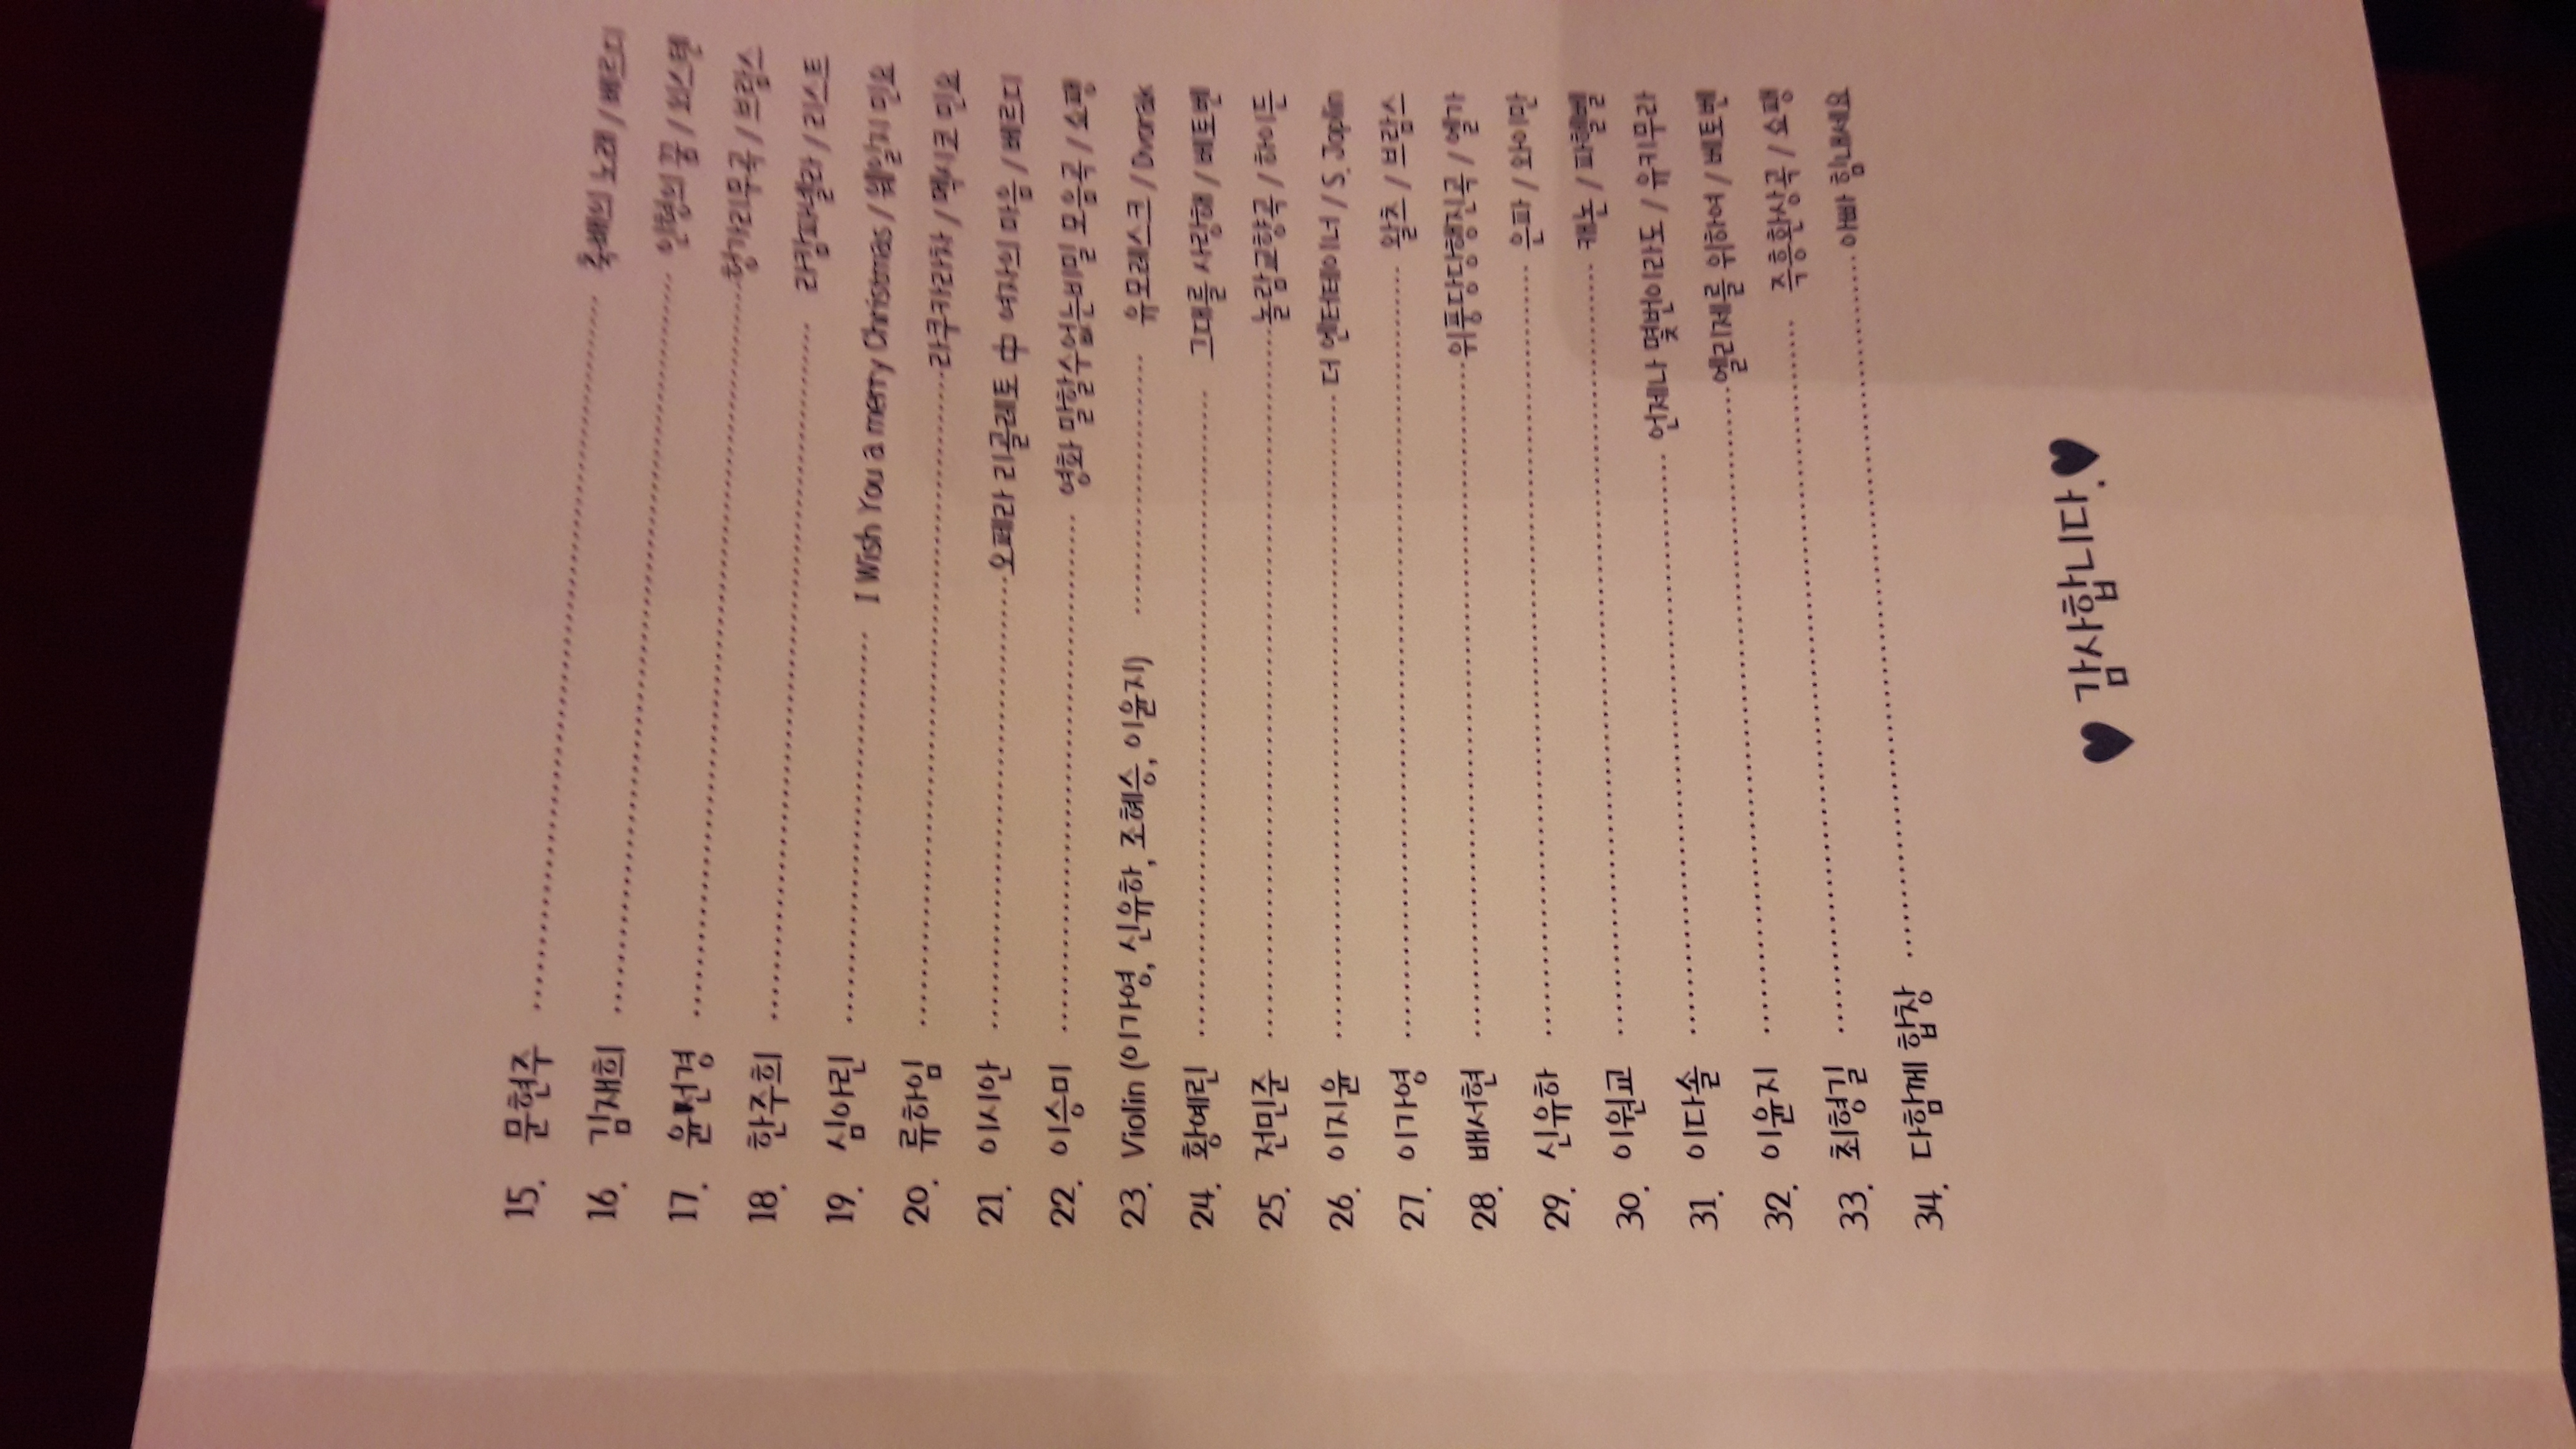 15. 문현주 ........ 축배의 노래 / 베르디
16. 김재희 ........ 인형의 꿈 / 외스텐
17. 윤선경 ........ 헝가리무곡 / 브람스
18. 한주희 ........ 라캄파넬라 / 리스트
19. 심아린 ........ I Wish You a merry Christmas / 웨일즈 민요
20. 류하임 ........ 라쿠카라차 / 멕시코 민요
21. 이시안 ........ 오페라 리골레토 中 여자의 마음 / 베르디
22. 이승미 ........ 영화 말할수없는비밀 모음곡 / 쇼팽
23. Violin (이가영, 신유하, 조혜승, 이윤지) ........ 유모레스크 / Dvorak
24. 황예린 ........ 그대를 사랑해 / 베토벤
25. 전민준 ........ 놀람교향곡 / 하이든
26. 이지윤 ........ 더 엔터테이너 / S. Joplin
27. 이가영 ........ 왈츠 / 브람스
28. 배서현 ........ 위풍당당행진곡 / 엘가
29. 신유하 ........ 은파 / 와이만
30. 이원교 ........ 캐논 / 파헬벨
31. 이다솔 ........ 언제나 몇번이라도 / 유키무라
32. 이윤지 ........ 엘리제를 위하여 / 베토벤
33. 최형길 ........ 즉흥환상곡 / 쇼팽
34. 다함께 합창 ........ 아빠 힘내세요
♥ 감사합니다.♥